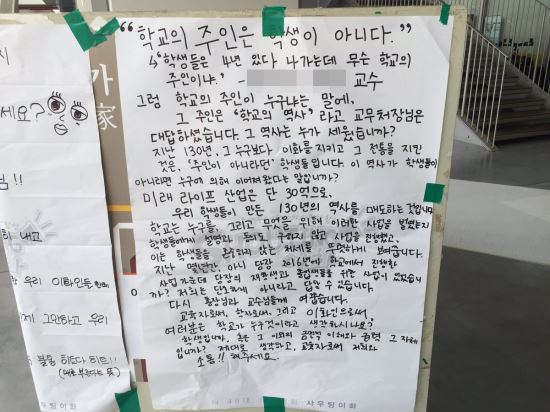 "학교의 주인은 학생이 아니다."
"학생들은 4년 있다 나가는데 무슨 학교의
주인이냐." - 교수
그럼 학교의 주인이 누구냐는 말에,
그 주인은 '학교의 역사' 라고 교무처장님은
대답하셨습니다. 그 역사는 누가 세웠습니까?
지난 130년, 그 누구보다 이화를 지키고 그 전통을 지킨
것은, '주인이 아니라던' 학생들입니다. 이 역사가 학생들이
아니라면 누구에 의해 이어져왔다는 말입니까?
미래 라이프 산업은 단 30억으로,
우리 학생들이 만든 130년의 역사를 매도하는 것입니다
학교는 누구를, 그리고 무엇을 위해 이러한 사업을 벌였는지
학생들에게 설명과 동의도 구하지 않고 사업을 진행했고,
이는 학생들을 존중하지 않는 처세를 뚜렷하게 보여줍니다.
지난 몇년간, 아니 당장 2016년에 학교에서 진행한
사업 가운데 당장의 재학생과 졸업생들을 위한 사업이 있었습니
까? 저희는 단호하게 아니라고 답할 수 있습니다.
다시 총장님과 교수님들께 여쭙습니다.
교육자로써, 학자로써, 그리고 이화인으로써,
여러분은 학교가 누구 것이라고 생각하시나요?
학생입니까, 혹은 그 이외의 금전적 이해와 권력 그 자체
입니까? 제대로 생각하고, 교육자로써 저희와
소통!! 해주세요.
사우팅이화
가
家
시
세요?
님!!
내고
우리 이화인들
그만하고 우리
불통 히트다 히트!!